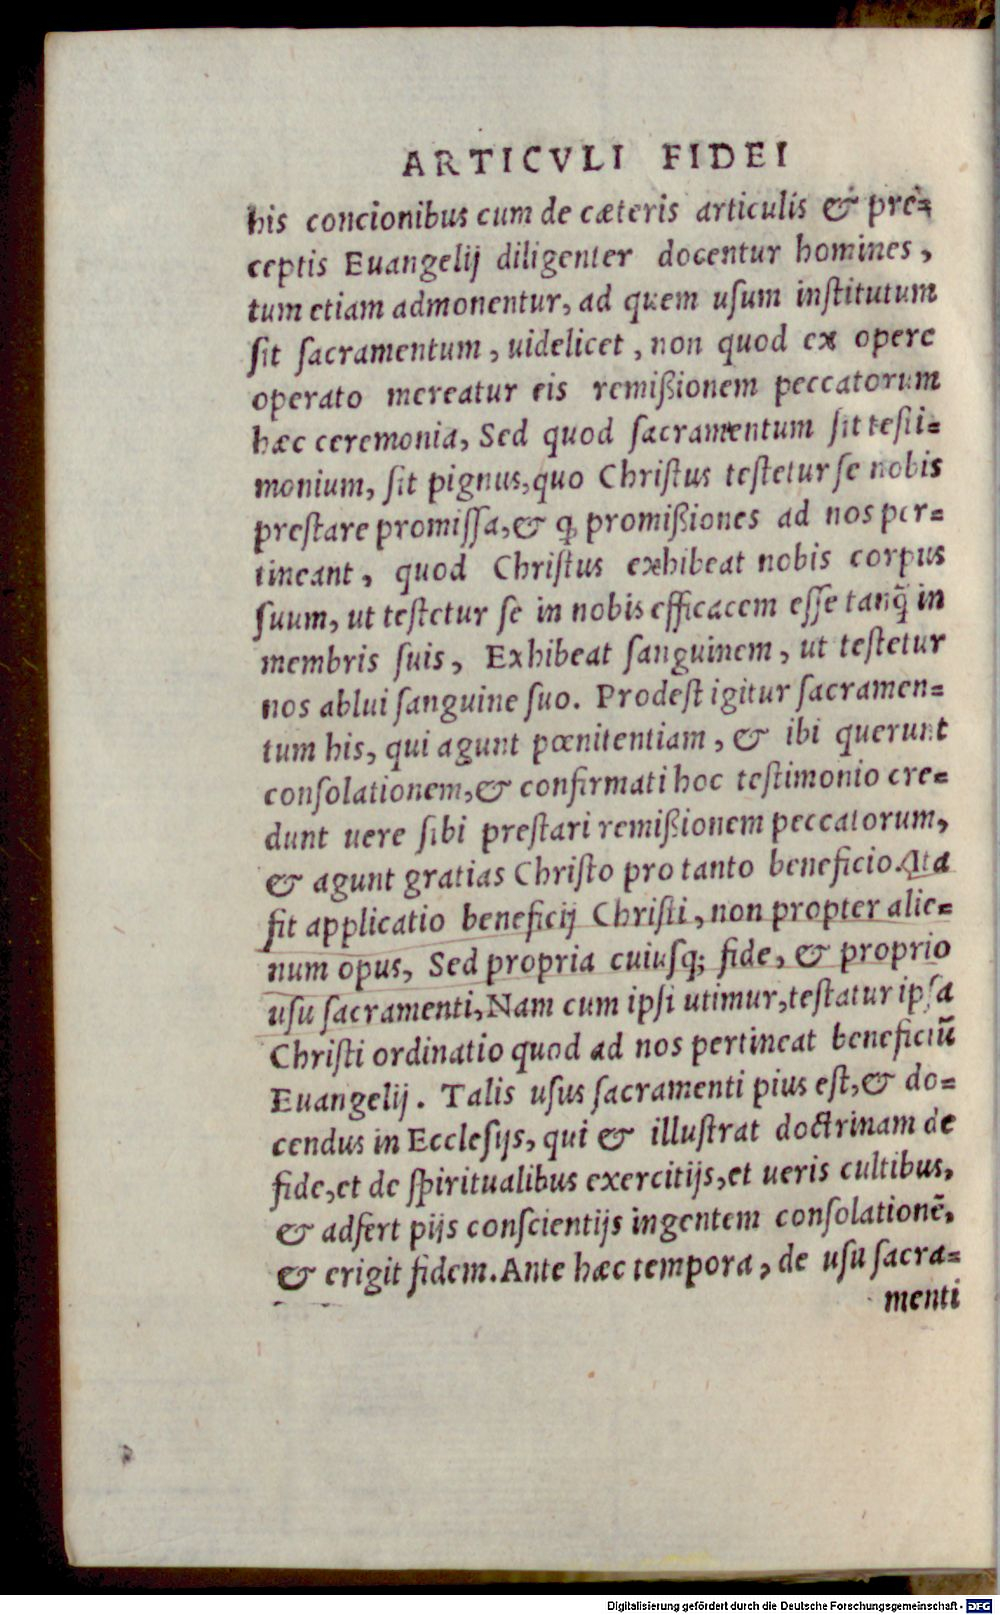 ARTICVLI FIDEI
his concionibus cum de cæteris articulis & pre=
ceptis Euangelij diligenter docentur homines,
tum etiam admonentur, ad quem uſum inſtitutum
ſit ſacramentum, uidelicet, non quod ex opere
operato mereatur eis remißionem peccatorum
hæc ceremonia, Sed quod ſacramentum ſit teſti=
monium, ſit pignus, quo Chriſtus teſtetur ſe nobis
preſtare promiſſa, & ꝙ promißiones ad nos per=
tineant, quod Chriſtus exhibeat nobis corpus
ſuum, ut teſtetur ſe in nobis efficacem eſſe tanq̃ in
membris ſuis, Exhibeat ſanguinem, ut teſtetur
nos ablui ſanguine ſuo. Prodeſt igitur ſacramen=
tum his, qui agunt pœnitentiam, & ibi querunt
conſolationem, & confirmati hoc teſtimonio cre=
dunt uere ſibi preſtari remißionem peccatorum,
& agunt gratias Chriſto pro tanto beneficio. Ita
fit applicatio beneficij Chriſti, non propter alie=
num opus, Sed propria cuiuſq; fide, & proprio
uſu ſacramenti, Nam cum ipſi utimur, teſtatur ipſa
Chriſti ordinatio quod ad nos pertineat beneficiū
Euangelij. Talis uſus ſacramenti pius eſt, & do=
cendus in Eccleſijs, qui & illuſtrat doctrinam de
fide, et de ſpiritualibus exercitijs, et ueris cultibus,
& adfert pijs conſcientijs ingentem conſolationē,
& erigit fidem. Ante hæc tempora, de uſu ſacra=
menti
Digitalisierung gefördert durch die Deutsche Forschungsgemeinschaft - DFG